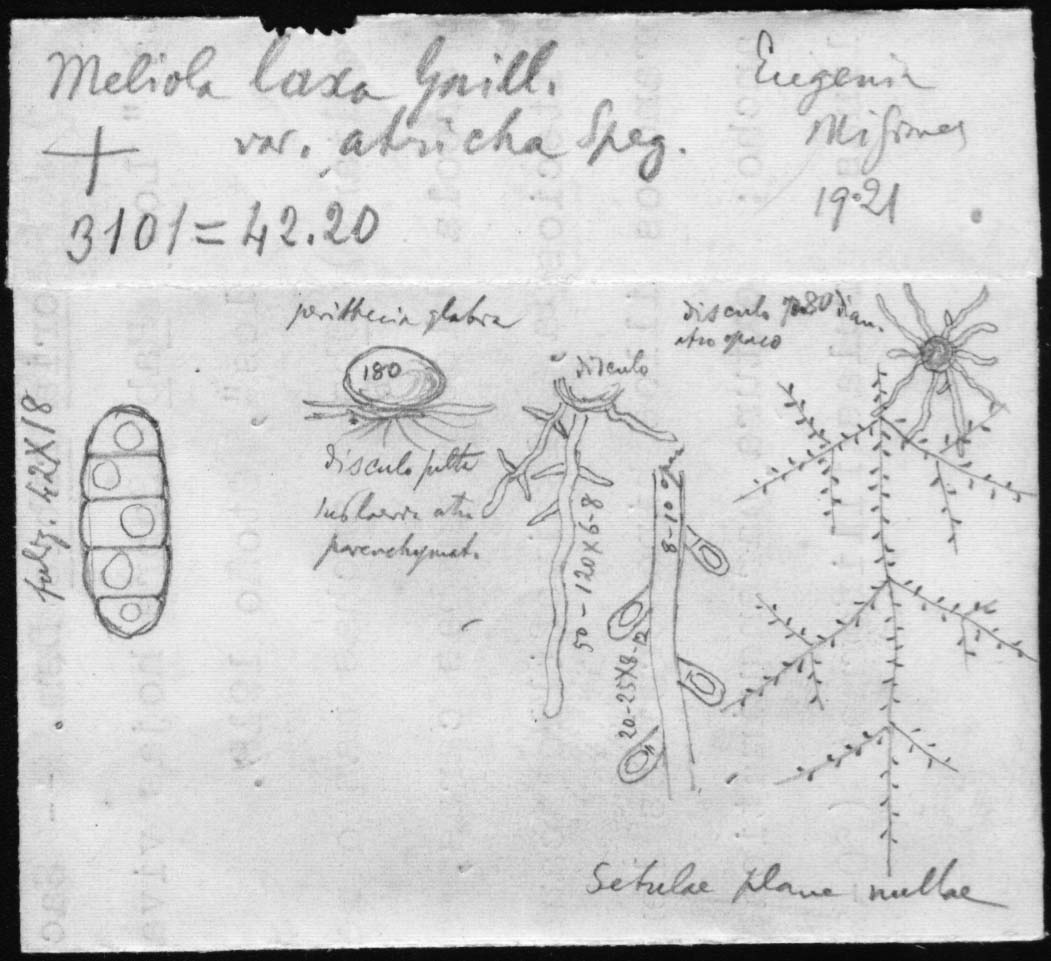 Meliola laxa Gaill.
var. atricha Speg.
3101 = 42.20
Eugenia
Misiones
19·21
perithecia glabra
180
disculo
parenchymat.
disculo
disculo 70-80 diam.
atro opaco
42X18
50 – 120 x 6-8
8-10
20-25X8-12
Setulae plane nullae